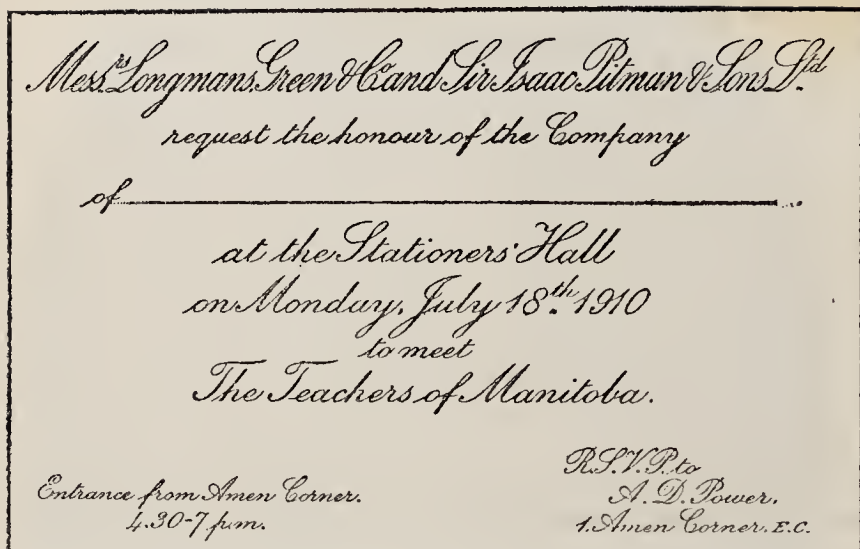 Messrs Longmans, Green & Co and Sir Isaac Pitman & Sons Ltd.
request the honour of the Company
of
at the Stationers' Hall
on Monday, July 18th. 1910
to meet
The Teachers of Manitoba.
Entrance from Amen Corner.
4.30-7 p.m.
R.S.V.P. to
A. D. Power,
1. Amen Corner. E.C.